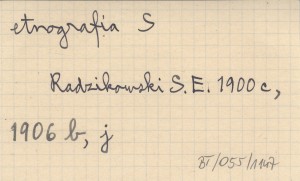 etnografia S
Radzikowski S. E. 1900 c,
1906 b, j
BT/055/1147